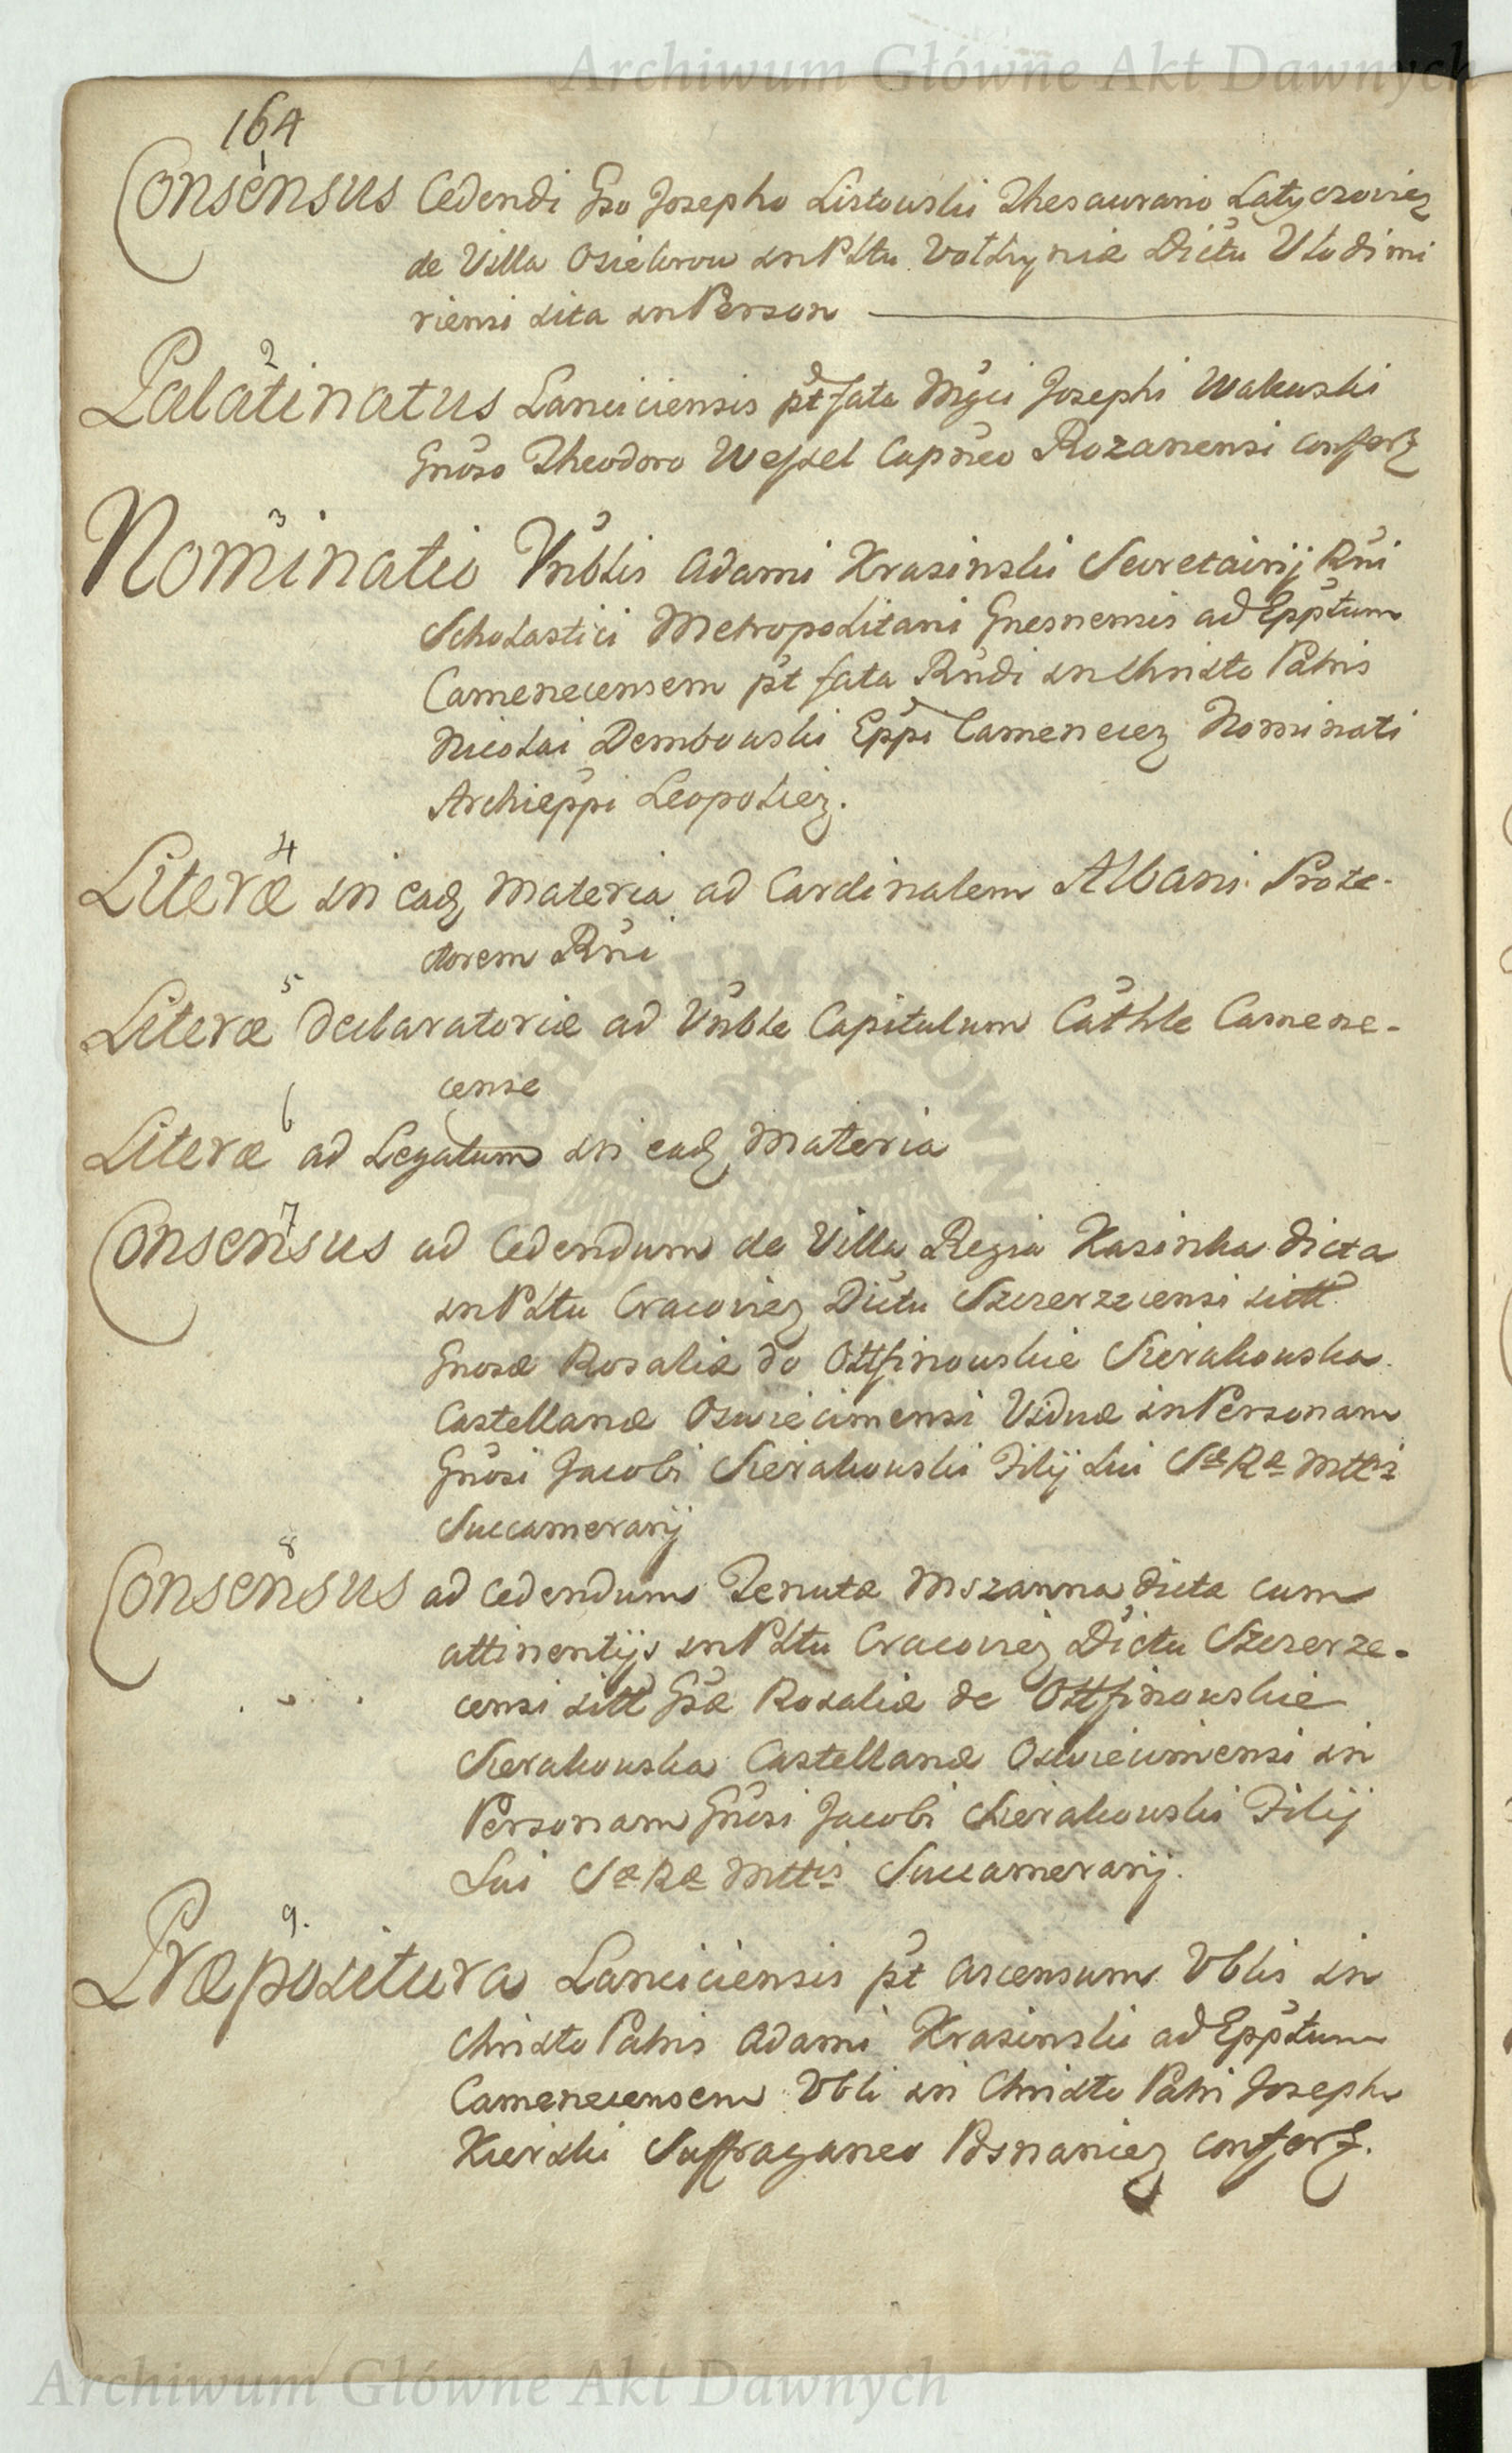 Archiwum Główne Akt Dawnych
164
1
Consensus Cedendi Gso Josepho Listowski Thesaurario Latyczoviez
de Villa Osiekrow in Pltu Volhyniæ Dictu Vlodimi
riensi sita in Person
2
Palatinatus Lanciciensis pt fata Mgci Josephi Wałewski
Gnoso Theodoro Wessel Capneo Rozanensi conferz
3
Nominatio Vnblis Adami Krasinski Secretairij Rni
Scholastici Metropolitani Gnesnensis ad Epptum
Camenecensem pt fata Rndi in Christo Patris
Nicolai Dembowski Eppi Cameneciez Nominati
Archieppi Leopoliez.
4
Literæ in eadz materia ad Cardinalem Albani Prote-
ctorem Rni
5
Literæ declaratoriæ ad Vnble Capitulum Cathle Camene-
cense
6
Literæ ad Legatum in eadz materia
7
Consensus ad Cedendum de Villa Regia Kasinka dicta
in Pltu Cracoviez Dictu Szczerzecensi sitt
Gnosæ Rosaliæ de Ottfinowskie Sierakowska
Castellanæ Oswiecimensi Viduæ in Personam
Gnosi Jacobi Sierakowski Filij sui Sæ Ræ Mttis
Succamerarij
8
Consensus ad cedendum Tenutæ Mszanna dicta cum
attinentijs in Pltu Cracoviez Dictu Szczerze-
censi sitt Gsæ Rosaliæ de Ottfinowskie
Sierakowska Castellanæ Oswiecimensi in
Personam Gnosi Jacobi Sierakowski Filij
Sui Sæ Ræ Mttis Succamerarij.
9.
Præpositura Lanciciensis pt ascensum Vblis in
Christo Patris Adami Krasinski ad Epptum
Camenecensem Vbli in Christo Patri Josepho
Kierski Suffraganeo Posnaniez conferz.
Archiwum Główne Akt Dawnych